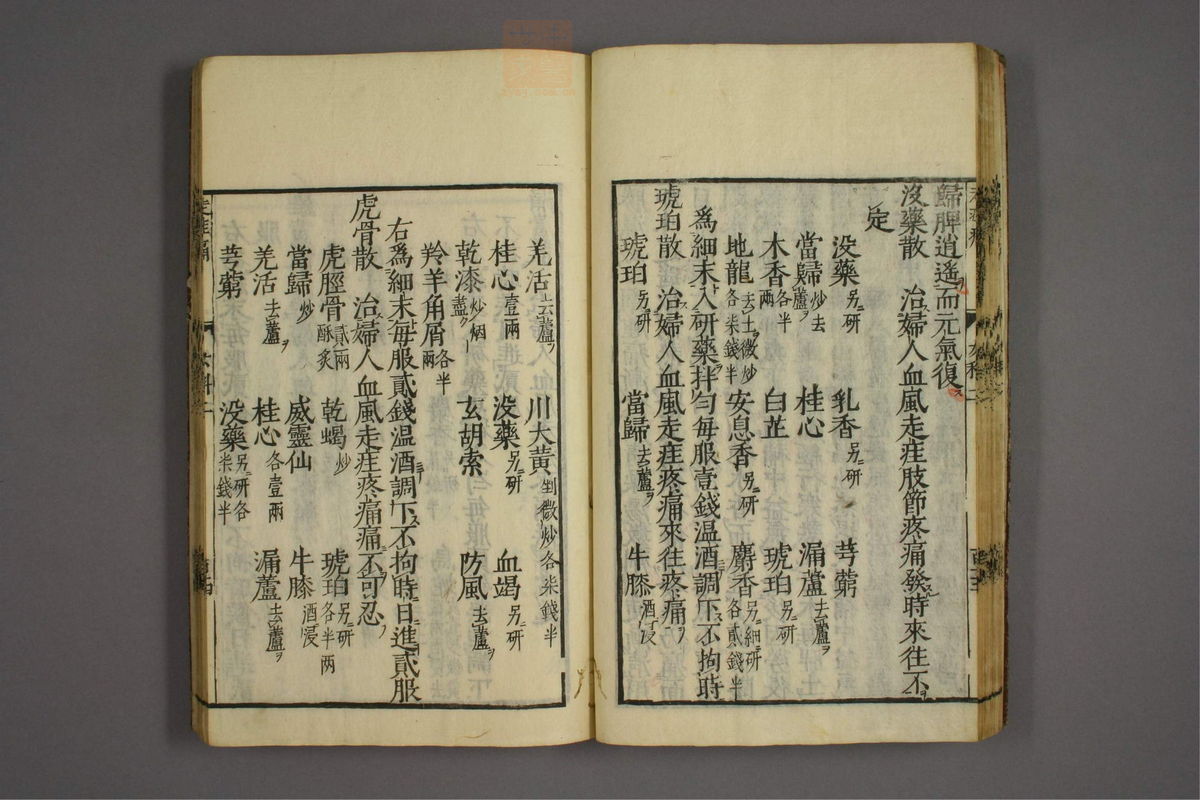 歸脾逍遙而元氣復
没藥散 治婦人血風走疰肢節疼痛發時來往不
定
没藥另研 乳香另研 芎藭
當歸炒去蘆 桂心 漏蘆去蘆
木香各半兩 白芷 琥珀另研
地龍去土微炒各柒錢半 安息香另研 麝香另細研各貳錢半
爲細末入研藥拌勻每服壹錢温酒調下不拘時
琥珀散 治婦人血風走疰疼痛來往疼痛
琥珀另研 當歸去蘆 牛膝酒浸
羌活去蘆 川大黄剉微炒各柒錢半
桂心壹兩 没藥另研 血竭另研
乾漆炒烟盡 玄胡索 防風去蘆
羚羊角屑各半兩
右爲細末每服貳錢温酒調下不拘時日進貳服
虎骨散 治婦人血風走疰疼痛痛不可忍
虎脛骨貳兩酥炙 乾蝎炒 琥珀另研各半兩
當歸炒 威靈仙 牛膝酒浸
羌活去蘆 桂心各壹兩 漏蘆去蘆
芎藭 没藥另研各柒錢半